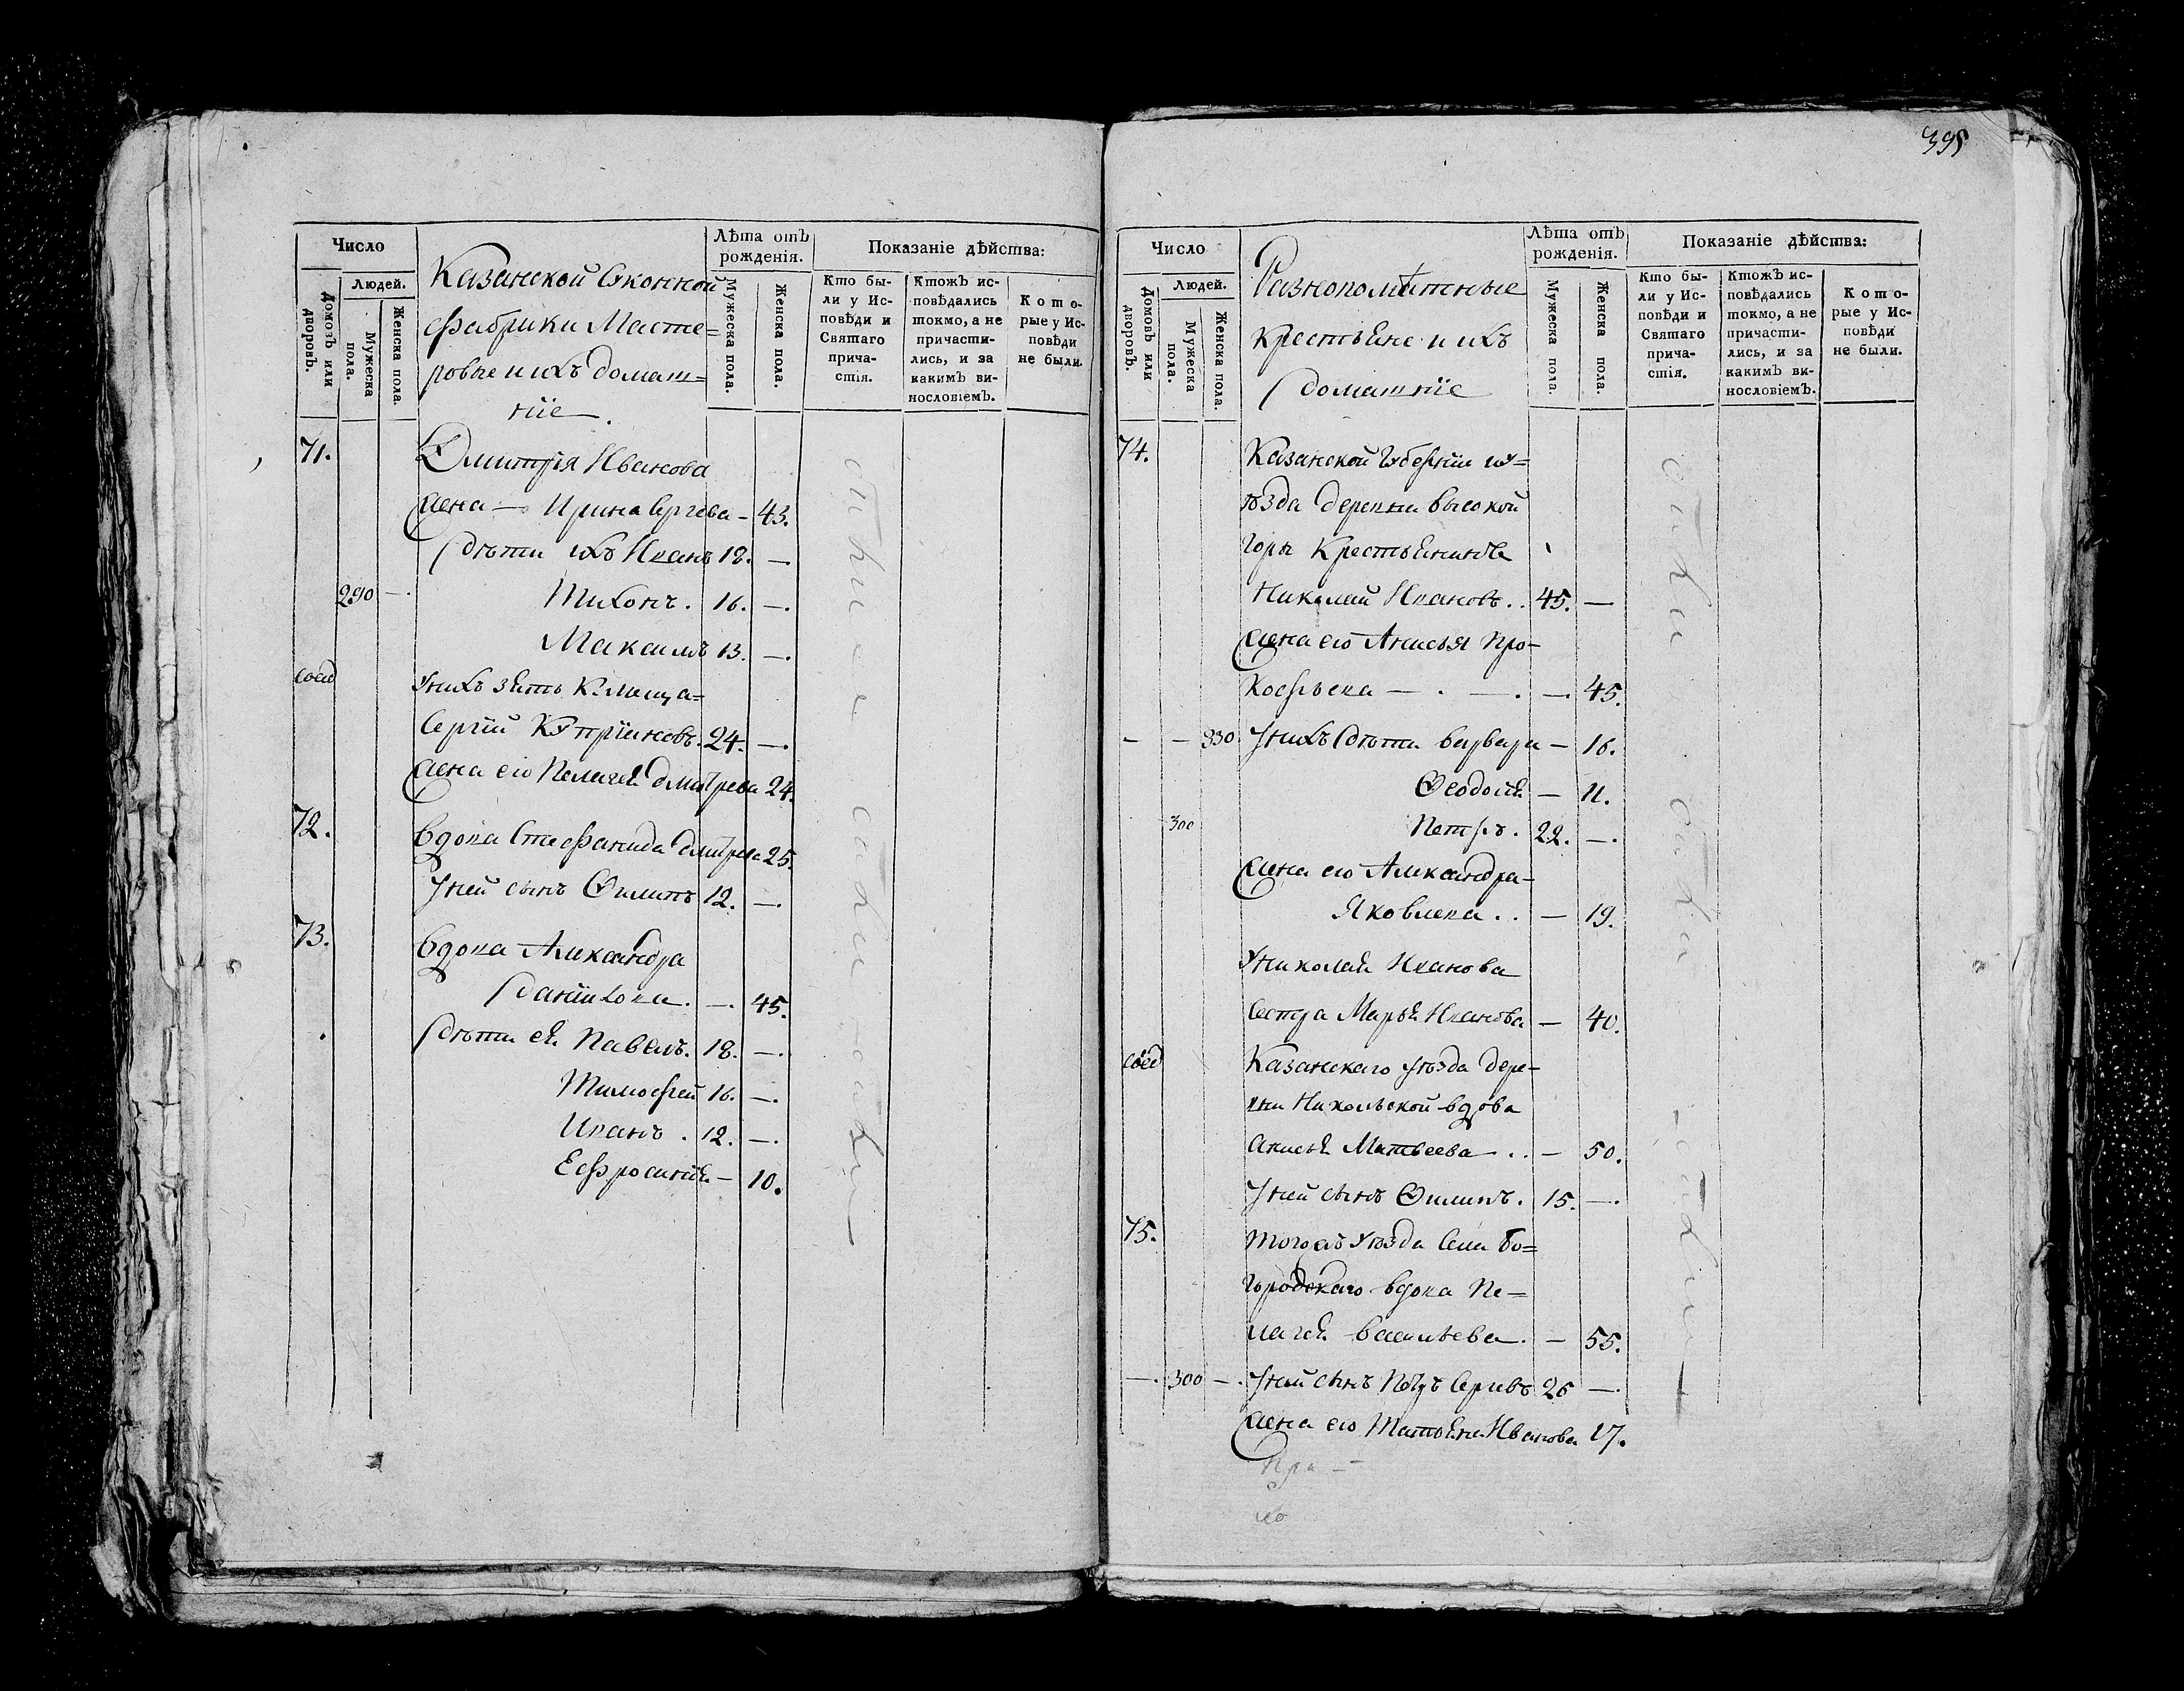 395
Число
Людей.
Домовъ или дворовъ.
Мужеска пола.
Женска пола.
Казанской Суконной
Фабрики Масте=
ровые и ихъ домаш=
ніе
Лѣта отъ рожденія.
Мужеска пола.
Женска пола.
Показаніе дѣйства:
Кто бы-
ли у Ис-
повѣди и
Святаго
прича-
стія.
Ктожъ ис-
повѣдались
токмо, а не
причасти-
лись, и за
какимъ ви-
нословіемъ.
Кото-
рые у Ис-
повѣди
не были.
71. Дмитрія Иванова
Жена — Ирина Сергева — 43.
Дѣти ихъ Иванъ 18. —
290 — Тихонъ. 16. —.
Максимъ 13. —.
У нихъ зять
Сергій Купріяновъ. 24. —.
Жена его Пелагея Дмитрева 24.
72. Вдова Стефанида Дмитрева 25.
У ней сынъ Филипъ 12. —.
73. Вдова Александра
Данилова. —. 45.
Дѣти ея Павелъ. 18. —.
Тимофей 16. —.
Иванъ. 12. —.
Ефросинія — 10.
Число
Людей.
Домовъ или дворовъ.
Мужеска пола.
Женска пола.
Разнопомѣтные
Крестьяне и ихъ
домашніе
Лѣта отъ рожденія.
Мужеска пола.
Женска пола.
Показаніе дѣйства:
Кто бы-
ли у Ис-
повѣди и
Святаго
прича-
стія.
Ктожъ ис-
повѣдались
токмо, а не
причасти-
лись, и за
какимъ ви-
нословіемъ.
Кото-
рые у Ис-
повѣди
не были.
74. Казанской Губерніи и у=
ѣзда деревни Высокой
Горы
Николай Ивановъ.. 45. —
Жена его Анисья Про-
кофьева — . —. — 45.
— — 330 У нихъ дѣти Варвара — 16.
Феодосія — 11.
300 Петръ. 22. —.
Жена его Александра
Яковлева.. — 19.
У Николая Иванова
Сестра Марья Иванова — 40.
Казанскаго уѣзда дере-
вни Никольской вдова
Анисья Матвеева.. — 50.
У ней сынъ Филипъ. 15. —.
75. Тогожъ Уѣзда Села Бо=
городскаго вдова Пе=
лагея Васильева. — 55.
—. 300 —. У ней сынъ Петръ 26 —.
Жена его Татьяна Иванова 17.